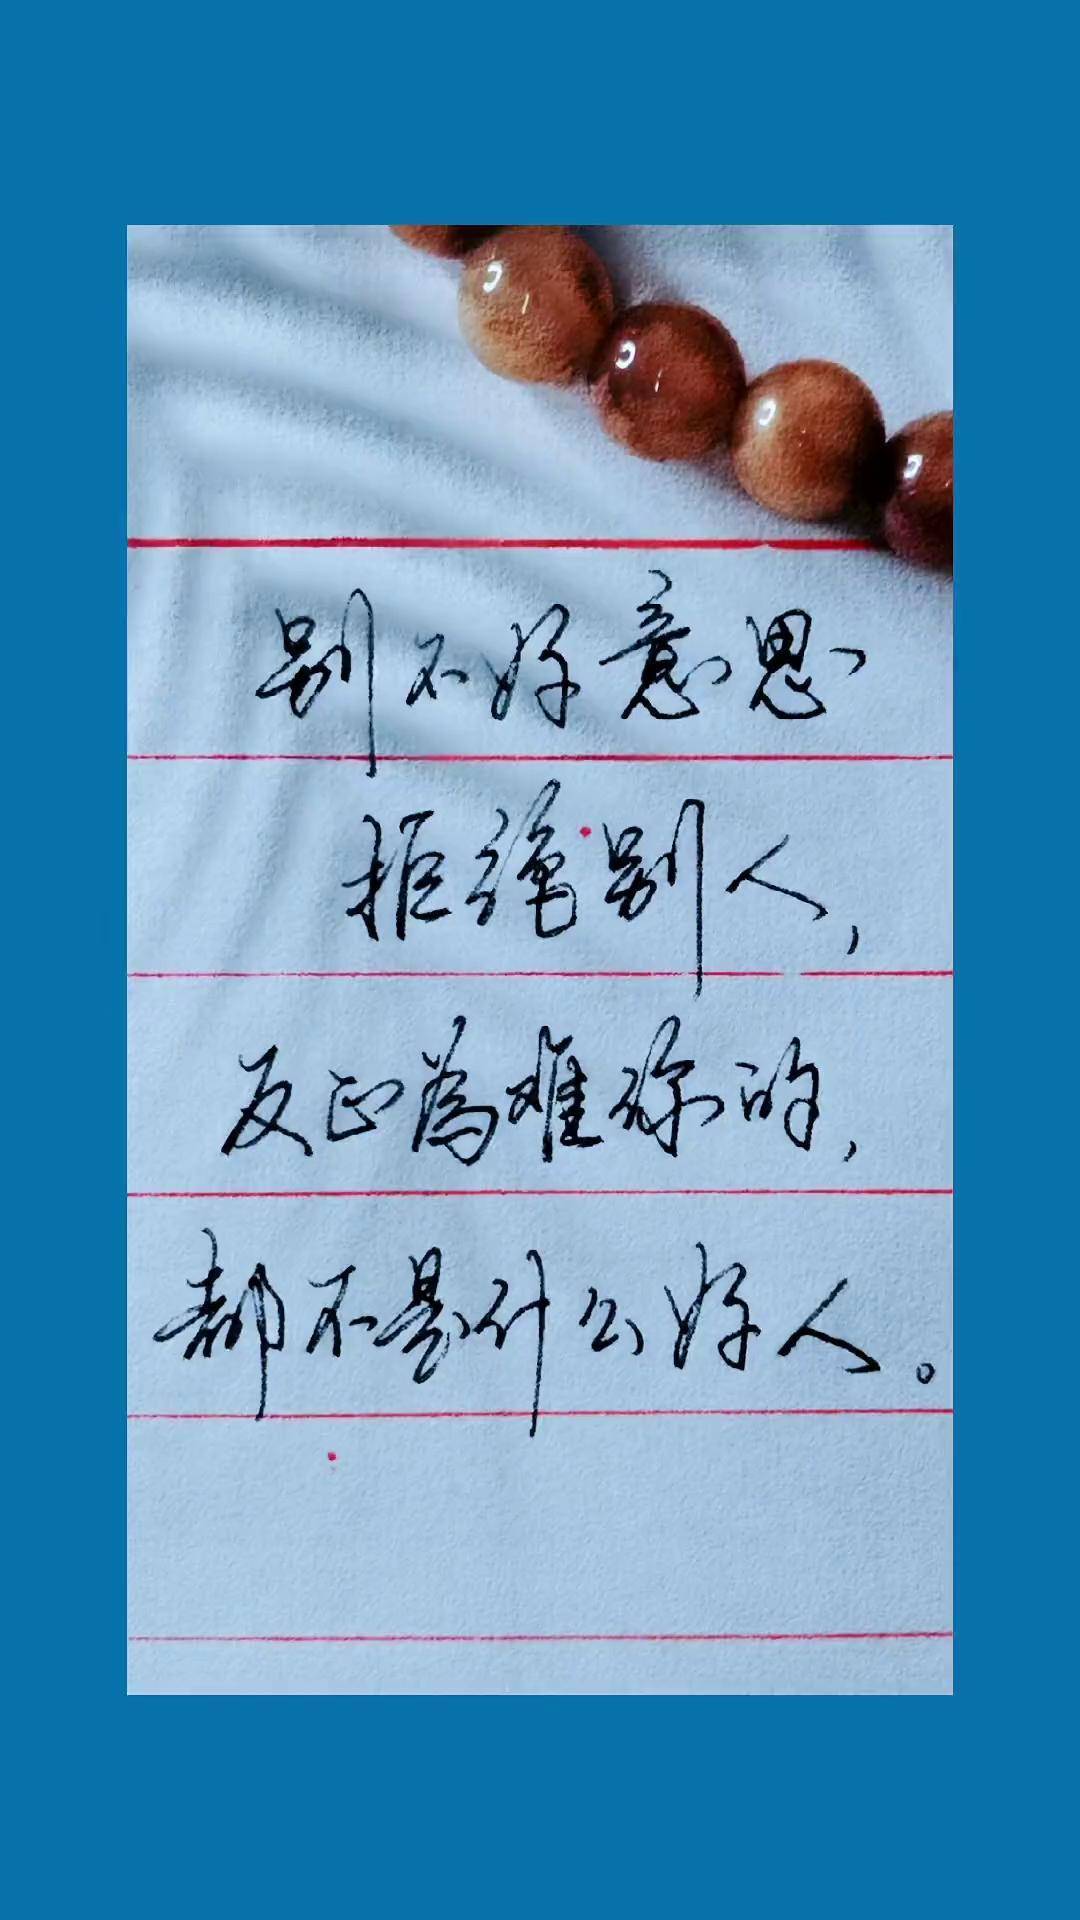 别不好意思
拒绝别人，
反正為难你的，
都不是什么好人。